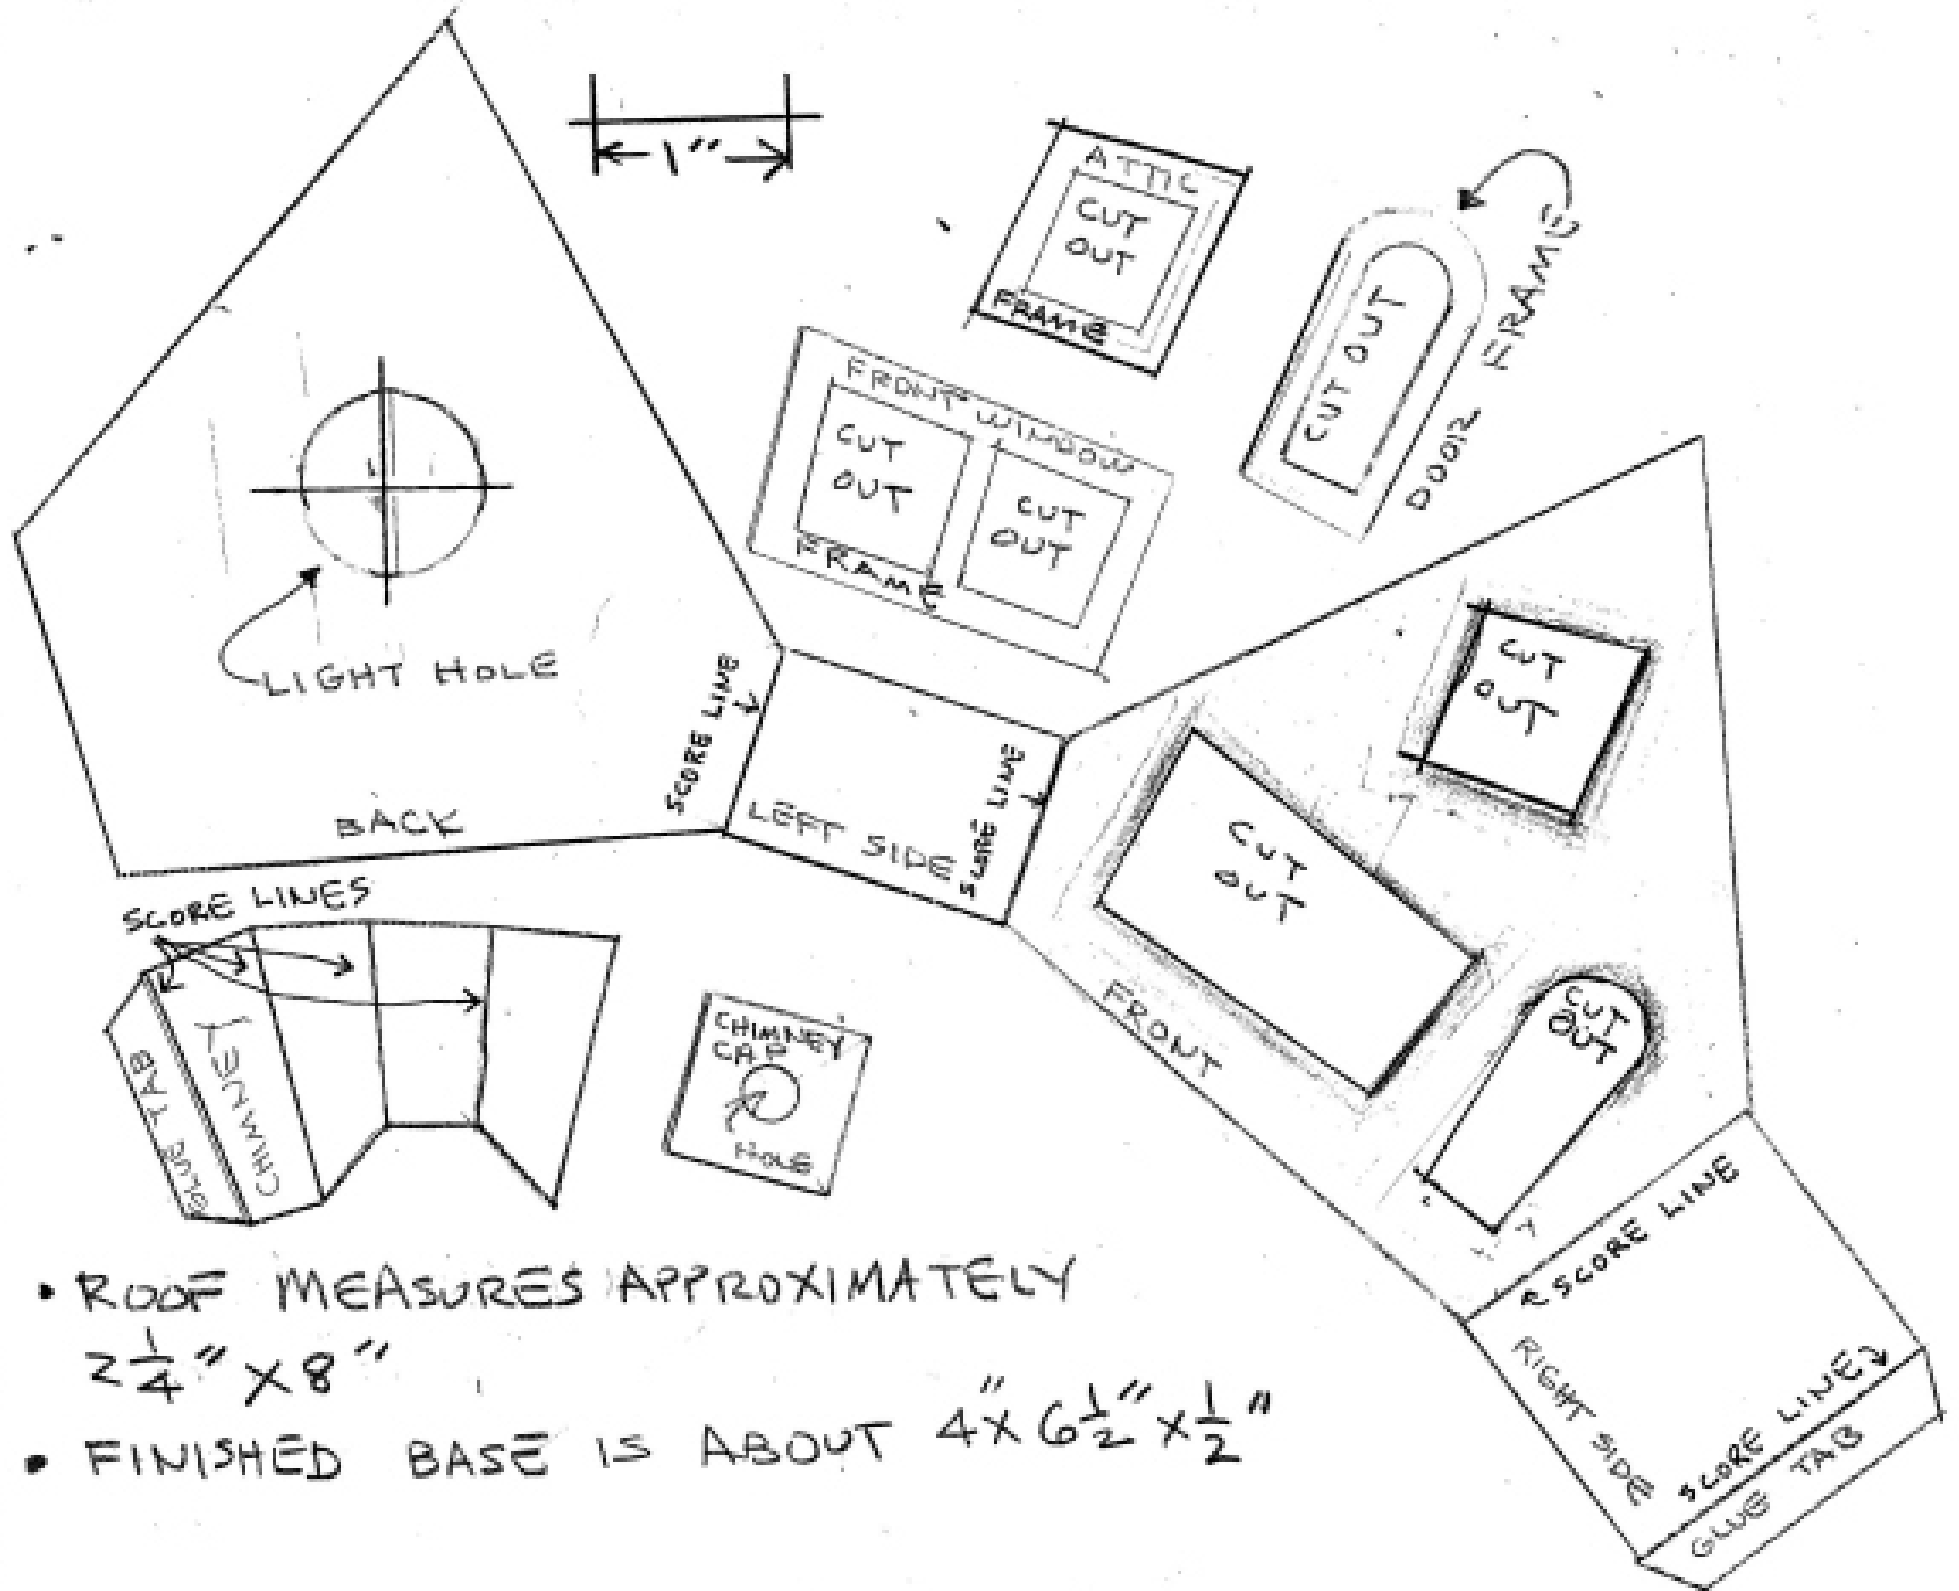 1"
ATTIC
CUT
OUT
FRAME
DOOR FRAME
CUT OUT
FRONT WINDOW
CUT
OUT
CUT
OUT
FRAME
LIGHT HOLE
BACK
SCORE LINE
LEFT SIDE
SCORE LINE
CUT
OUT
CUT
OUT
CUT
OUT
FRONT
SCORE LINES
GLUE TAB
CHIMNEY
CHIMNEY
CAP
HOLE
SCORE LINE
RIGHT SIDE
SCORE LINE
GLUE TAB
• ROOF MEASURES APPROXIMATELY
2 1/4" X 8"
• FINISHED BASE IS ABOUT 4" X 6 1/2" X 1/2"